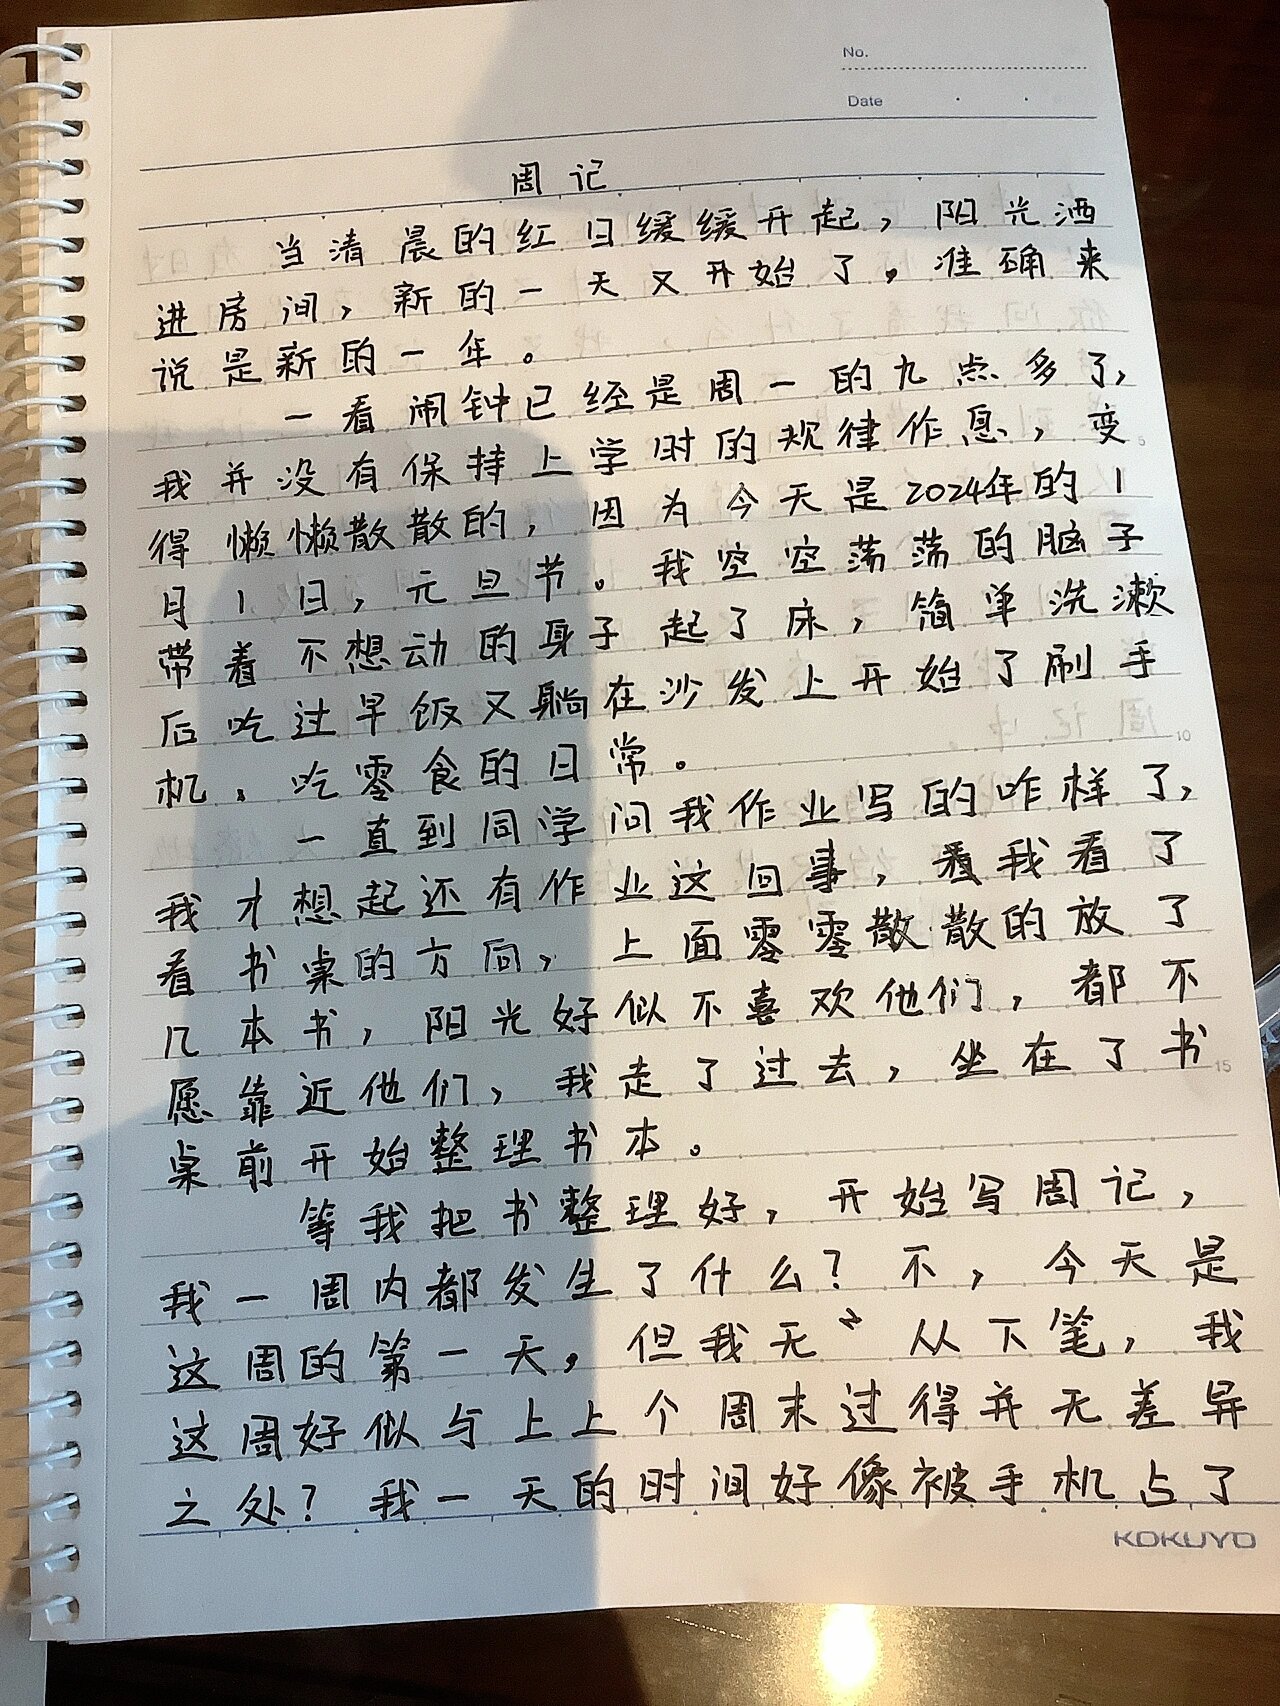 No.
Date
周记
当清晨的红日缓缓开起，阳光洒
进房间，新的一天又开始了。准确来
说是新的一年。
一看闹钟已经是周一的九点多了，
我并没有保持上学时的规律作息，变
得懒懒散散的，因为今天是2024年的1
月1日，元旦节。我空空荡荡的脑子
带着不想动的身子起了床，简单洗漱
后吃过早饭又躺在沙发上开始了刷手
机、吃零食的日常。
10
一直到同学问我作业写的咋样了，
我才想起还有作业这回事，我看了
看书桌的方向，上面零零散散的放了
几本书，阳光好似不喜欢他们，都不
愿靠近他们，我走了过去，坐在了书
15
桌前开始整理书本。
等我把书整理好，开始写周记，
我一周内都发生了什么？不，今天是
这周的第一天，但我无从下笔，我
这周好似与上上个周末过得并无差异
之处？我一天的时间好像被手机占了
KOKUYO